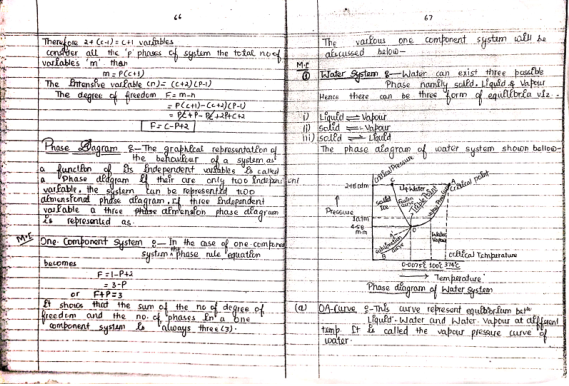 66
Therefore 2+(c-1) = c+1 variables
consider all the 'p' phases of system the total no of
variables 'm' than
m = P(c+1)
The Intensive variable (n) = (c+2)(P-1)
The degree of freedom F = m-n
= P(c+1)-(c+2)(P-1)
F = C-P+2
Phase Diagram :- The graphical representation of
the behaviour of a system as
a function of its Independent variables is called
a Phase diagram if their are only two Independent
variable, the system can be represented two
dimensional phase diagram, if three Independent
variable a three phase dimension phase diagram
is represented as.
M.E
One Component System :- In the case of one component
system phase rule equation
becomes
F = 1-P+2
= 3-P
or F+P = 3
It shows that the sum of the no of degree of
freedom and the no. of phases in a one
component system is always three (3).
67
The various one component system will be
discussed below-
M.E
① Water System :- Water can exist three possible
Phase namily solid, Liquid & Vapour
Hence there can be three form of equilibria viz.
i) Liquid ⇌ Vapour
ii) solid ⇌ Vapour
iii) solid ⇌ Liquid
The phase diagram of water system shown below-
218 atm
Critical Pressure
Critical point
Pressure
1 atm
4.58
mm
Solid
Ice
Water
Vapour
critical Temperature
0.0075°C 100°C 374°C
Temperature
Phase diagram of Water System
(a) OA-Curve :- This curve represent equilibrium betn
Liquid-Water and Water Vapour at different
temp. It is called the vapour pressure curve of
water.